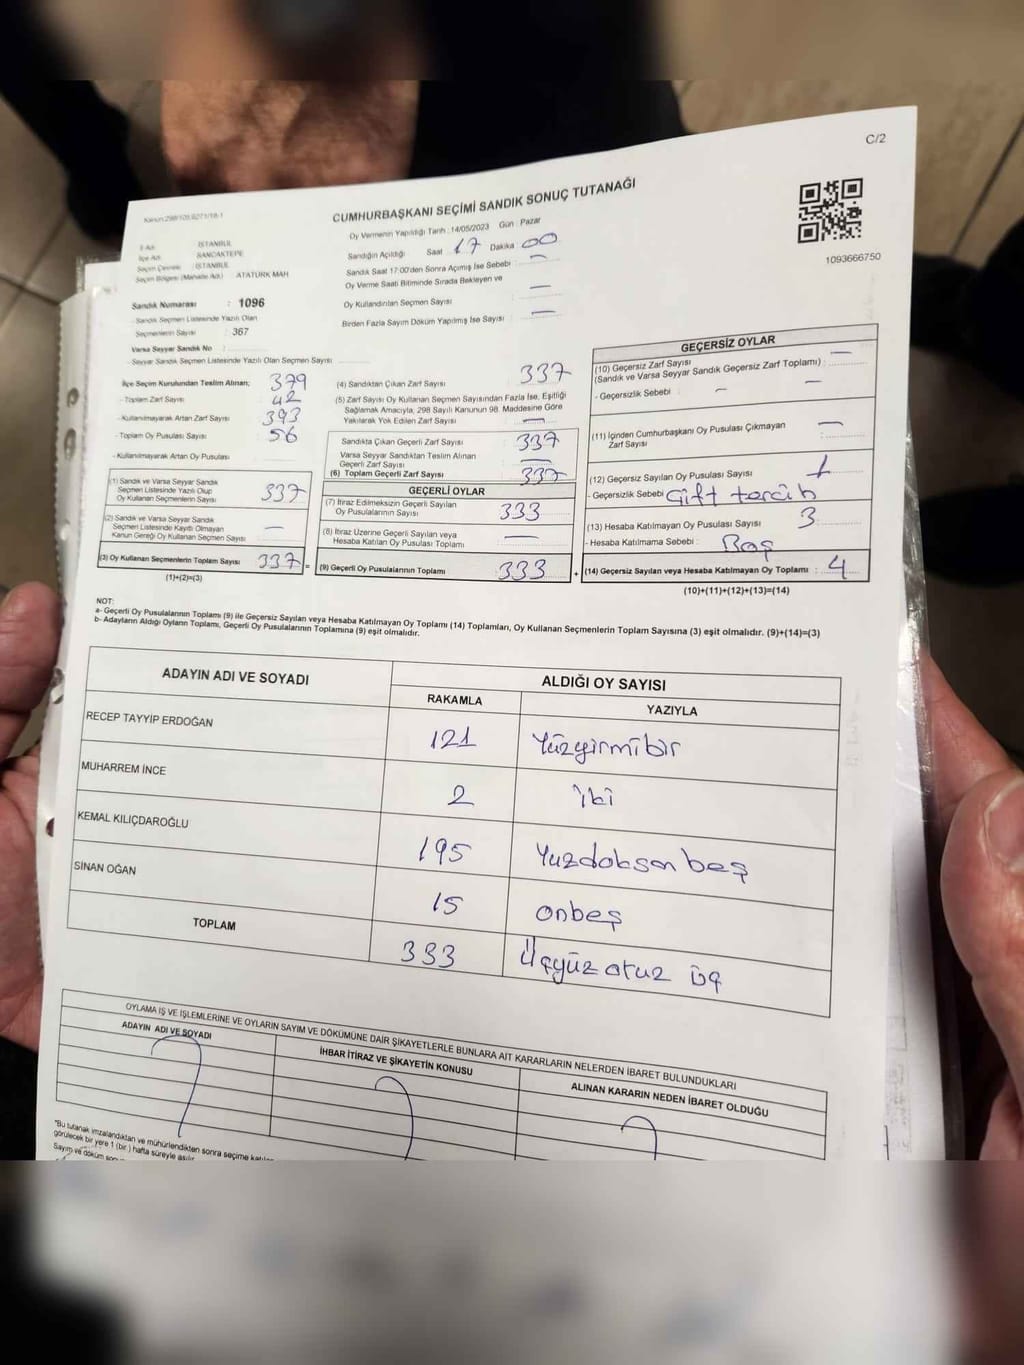 C/2
CUMHURBAŞKANI SEÇİMİ SANDIK SONUÇ TUTANAĞI
Oy Vermenin Yapıldığı Tarih : 14/05/2023 Gün : Pazar
Sandığın Açıldığı Saat 17 Dakika 00
Sandık Saat 17:00'den Sonra Açılmış İse Sebebi : —
Oy Verme Saati Bitiminde Sırada Bekleyen ve
Oy Kullandırılan Seçmen Sayısı —
Birden Fazla Sayım Döküm Yapılmış İse Sayısı : —
1093666750
İl Adı : İSTANBUL
İlçe Adı : SANCAKTEPE
Seçim Çevresi : İSTANBUL
Seçim Bölgesi (Mahalle Adı) : ATATÜRK MAH
Sandık Numarası : 1096
- Sandık Seçmen Listesinde Yazılı Olan
Seçmenlerin Sayısı : 367
Varsa Seyyar Sandık No :
- Seyyar Sandık Seçmen Listesinde Yazılı Olan Seçmen Sayısı
İlçe Seçim Kurulundan Teslim Alınan;
- Toplam Zarf Sayısı
- Kullanılmayarak Artan Zarf Sayısı
- Toplam Oy Pusulası Sayısı
- Kullanılmayarak Artan Oy Pusulası
379
42
393
56
(1) Sandık ve Varsa Seyyar Sandık
Seçmen Listesinde Yazılı Olup
Oy Kullanan Seçmenlerin Sayısı 337
(2) Sandık ve Varsa Seyyar Sandık
Seçmen Listesinde Kayıtlı Olmayan
Kanun Gereği Oy Kullanan Seçmen Sayısı —
(3) Oy Kullanan Seçmenlerin Toplam Sayısı 337 =
(1)+(2)=(3)
(4) Sandıktan Çıkan Zarf Sayısı 337
(5) Zarf Sayısı Oy Kullanan Seçmen Sayısından Fazla İse, Eşitliği
Sağlamak Amacıyla, 298 Sayılı Kanunun 98. Maddesine Göre
Yakılarak Yok Edilen Zarf Sayısı —
Sandıkta Çıkan Geçerli Zarf Sayısı 337
Varsa Seyyar Sandıktan Teslim Alınan
Geçerli Zarf Sayısı —
(6) Toplam Geçerli Zarf Sayısı 337
GEÇERLİ OYLAR
(7) İtiraz Edilmeksizin Geçerli Sayılan
Oy Pusulalarının Sayısı 333
(8) İtiraz Üzerine Geçerli Sayılan veya
Hesaba Katılan Oy Pusulaları Toplamı —
(9) Geçerli Oy Pusulalarının Toplamı 333 +
GEÇERSİZ OYLAR
(10) Geçersiz Zarf Sayısı —
(Sandık ve Varsa Seyyar Sandık Geçersiz Zarf Toplamı) : —
- Geçersizlik Sebebi : —
(11) İçinden Cumhurbaşkanı Oy Pusulası Çıkmayan —
Zarf Sayısı
(12) Geçersiz Sayılan Oy Pusulası Sayısı : 1
- Geçersizlik Sebebi Çift tercih
(13) Hesaba Katılmayan Oy Pusulası Sayısı : 3
- Hesaba Katılmama Sebebi : Boş
(14) Geçersiz Sayılan veya Hesaba Katılmayan Oy Toplamı : 4
(10)+(11)+(12)+(13)=(14)
NOT:
a- Geçerli Oy Pusulalarının Toplamı (9) ile Geçersiz Sayılan veya Hesaba Katılmayan Oy Toplamı (14) Toplamları, Oy Kullanan Seçmenlerin Toplam Sayısına (3) eşit olmalıdır. (9)+(14)=(3)
b- Adayların Aldığı Oyların Toplamı, Geçerli Oy Pusulalarının Toplamına (9) eşit olmalıdır.
ADAYIN ADI VE SOYADI ALDIĞI OY SAYISI
RAKAMLA YAZIYLA
RECEP TAYYİP ERDOĞAN 121 Yüzyirmibir
MUHARREM İNCE 2 iki
KEMAL KILIÇDAROĞLU 195 Yuzdoksan beş
SİNAN OĞAN 15 onbeş
TOPLAM 333 Üçyüz otuz üç
OYLAMA İŞ VE İŞLEMLERİNE VE OYLARIN SAYIM VE DÖKÜMÜNE DAİR ŞİKAYETLERLE BUNLARA AİT KARARLARIN NELERDEN İBARET BULUNDUKLARI
ADAYIN ADI VE SOYADI İHBAR İTİRAZ VE ŞİKAYETİN KONUSU ALINAN KARARIN NEDEN İBARET OLDUĞU
"Bu tutanak imzalandıktan ve mühürlendikten sonra seçime
görülecek bir yere 1 (bir) hafta süreyle asılır.
Sayım ve döküm